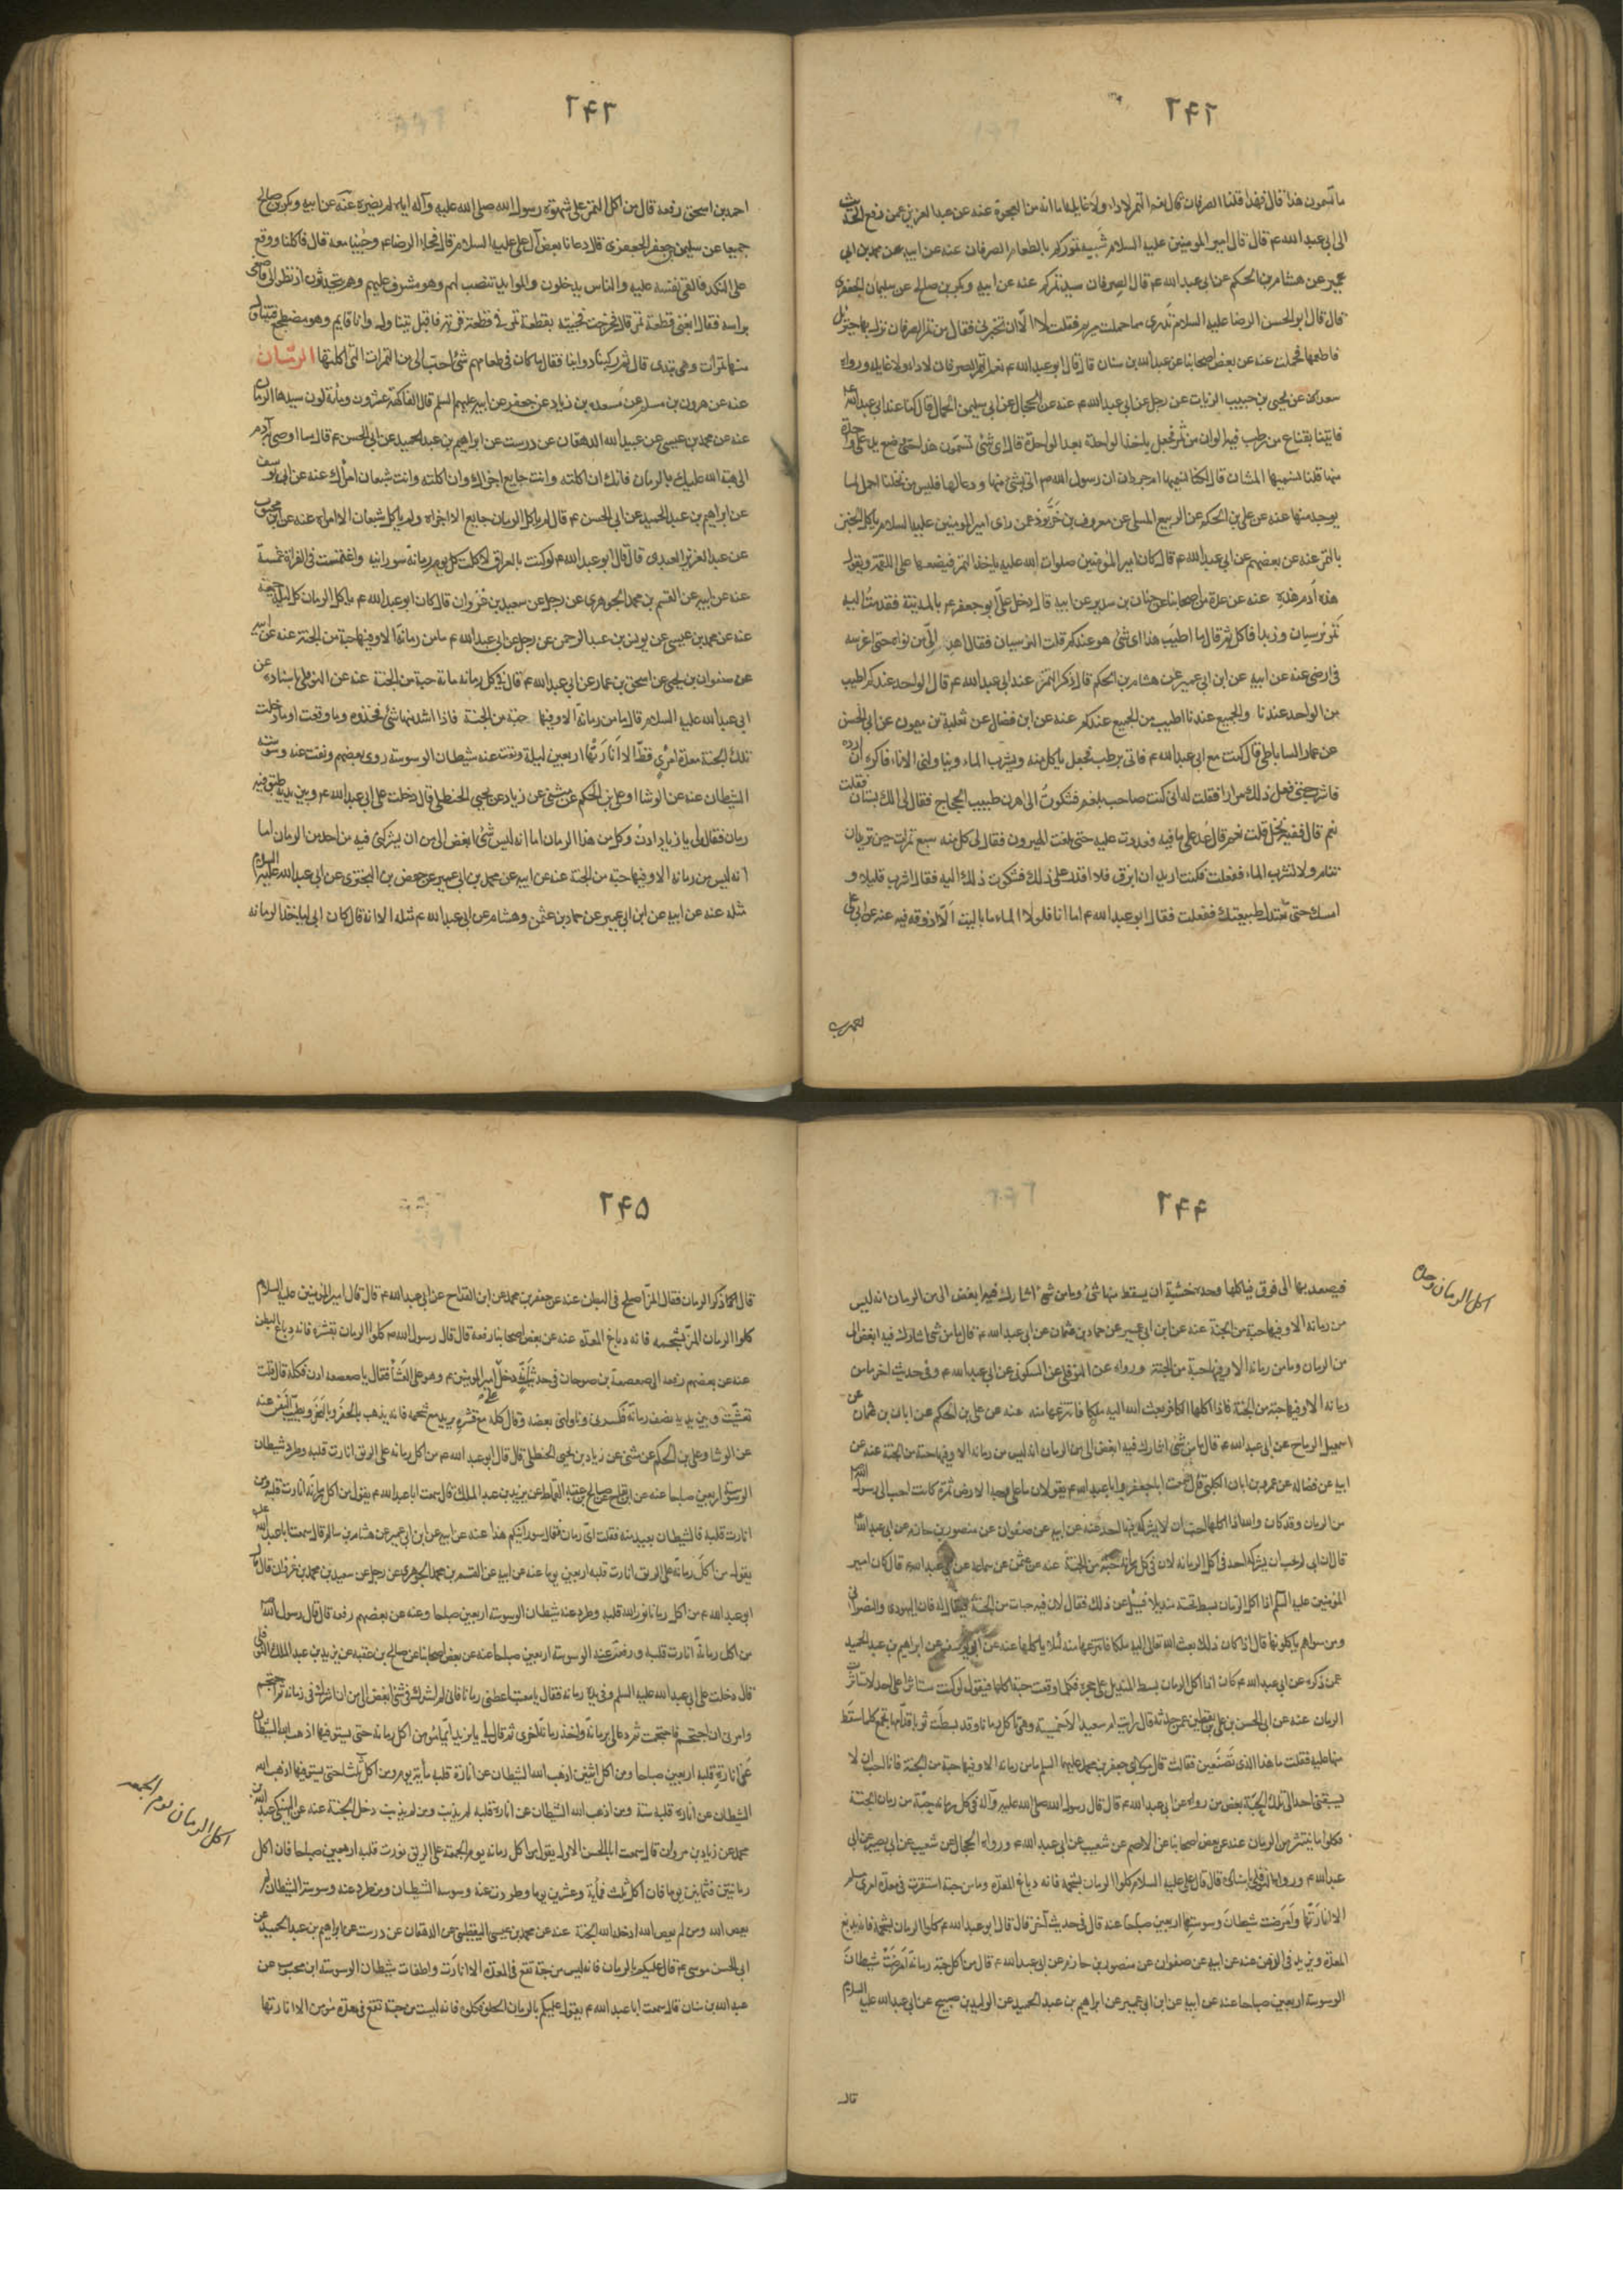 ٢٤٢
ما تسمون هذا قال فهذا قلنا الصرفان قال نعم التمر لا داء ولا غايلة اما انه من العجوة عنه عن عبد العزيز عمن رفع الحديث
الى ابي عبد الله ع قال قال امير المومنين عليه السلام شبيه تموركم بالطعام الصرفان عنه عن ابيه عن محمد بن ابي
عمير عن هشام بن الحكم عن ابي عبد الله ع قال الصرفان سيد تمركم عنه عن ابيه وبكر بن صالح عن سليمان الجعفري
قال قال ابو الحسن الرضا عليه السلام تدري مما حملت مريم فقلت لا الا ان تخبرني فقال من تمر الصرفان نزل بها جبرئيل
فاطعمها فحملت عنه عن بعض اصحابنا عن عبد الله بن سنان قال قال ابو عبد الله ع نعم التمر الصرفان لا داء ولا غايلة ورواه
سعدان عن يحيى بن حبيب الزيات عن رجل عن ابي عبد الله ع عنه عن الحجال عن ابي سليمن الحمال قال كنا عند ابي عبد الله
فاتينا بقناع من رطب فيه الوان من تمر فجعل ياخذ الواحدة بعد الواحدة قال اي شئ تسمون هذه حتى وضع يده على واحدة
منها قلنا نسميها المشان قال لكنا نسميها ام جرذان ان رسول الله ص اتى بشئ منها ودعا لها فليس من نخلنا احمل لما
يوجد منها عنه عن علي بن الحكم عن الربيع المسلى عن معروف بن خربوذ عمن راى امير المومنين عليه السلام ياكل الخبز
بالتمر عنه عن بعضهم عن ابي عبد الله ع قال كان امير المؤمنين صلوات الله عليه ياخذ التمر فيضعها على اللقمة ويقول
هذه ادم هذه عنه عن عدة من اصحابنا عن حنان بن سدير عن ابيه قال دخل علي ابو جعفر ع بالمدينة فقدمت اليه
تمر نرسيان وزبدا فاكل ثم قال ما اطيب هذا اى شئ هو عندكم قلت النرسيان فقال اهد الي من نواه حتى اغرسه
في ارضي عنه عن ابيه عن ابن ابي عمير عن هشام بن الحكم قال ذكر التمر عند ابي عبد الله ع قال الواحد عندكم اطيب
من الواحد عندنا والجميع عندنا اطيب من الجميع عندكم عنه عن ابن فضال عن ثعلبة بن ميمون عن ابي الحسن
عن عمار الساباطي قال كنت مع ابي عبد الله ع فاتي برطب فجعل ياكل منه ويشرب الماء ويناولني الاناء فاكره ان ارده
فاشرب حتى فعل ذلك مرارا فقلت له اني كنت صاحب بلغم فشكوت الى اهرن طبيب الحجاج فقال لي الك بستان فقلت
نعم قال ففيه نخل قلت نعم قال عد على ما فيه فعددت عليه حتى بلغت الهيرون فقال لي كل منه سبع تمرات حين تريد ان
تنام ولا تشرب الماء ففعلت فكنت اريد ان ابزق فلا اقدر على ذلك فشكوت ذلك اليه فقال اشرب قليلا و
امسك حتى تعتدل طبيعتك ففعلت فقال ابو عبد الله ع اما انا فلولا الماء ما باليت الا اذوقه عنه عن ابي علي
٢٤٣
احمد بن اسحق رفعه قال من اكل التمر على شهوة رسول الله صلى الله عليه وآله اياه لم يضره عنه عن ابيه وبكر بن صالح
جميعا عن سليمن بن جعفر الجعفري قال دعانا بعض آل علي عليه السلام قال فجاء الرضا ع وجئنا معه قال فاكلنا ووقع
على الكد فالقى نفسه عليه والناس يدخلون والموايد تنصب لهم وهو مشرف عليهم وهم يتحدثون اذ نظر الي فاصغى
منها تمرات وهي بيدي قال ثم ركبنا دوابنا فقال ما كان في طعامهم شئ احب الي من التمرات التي اكلتها الرمان
عنه عن هرون بن مسلم عن مسعدة بن زياد عن جعفر عن ابيه عليهم السلم قال الفاكهة عشرون ومأة لون سيدها الرمان
عنه عن محمد بن عيسى عن عبيد الله الدهقان عن درست عن ابراهيم بن عبد الحميد عن ابي الحسن ع قال مما اوصى آدم
الى هبة الله عليك بالرمان فانك ان اكلته وانت جايع اجزاك وان اكلته وانت شبعان امراك عنه عن ابي يوسف
عن ابراهيم بن عبد الحميد عن ابي الحسن ع قال لم ياكل الرمان جايع الا اجزاه ولم ياكل شبعان الا امراه عنه عن ابن محبوب
عن عبد العزيز العبدي قال قال ابو عبد الله ع لو كنت بالعراق لاكلت كل يوم رمانة سورانية واغتمست في الفراة غمسة
عنه عن ابيه عن القسم بن محمد الجوهري عن رجل عن سعيد بن غزوان قال كان ابو عبد الله ع ياكل الرمان كل ليلة جمعة
عنه عن محمد بن عيسى عن يونس بن عبد الرحمن عن رجل عن ابي عبد الله ع ما من رمانة الا وفيها حبة من الجنة عنه عن ابيه
عن صفوان بن يحيى عن اسحق بن عمار عن ابي عبد الله ع قال في كل رمانة حبة من الجنة عنه عن النوفلي باسناده عن
ابي عبد الله عليه السلام قال ما من رمانة الا وفيها حبة من الجنة فاذا شذ منها شئ فخذوه وما وقعت او ما دخلت
تلك الحبة معدة امرئ قط الا انارتها اربعين ليلة ونفت عنه شيطان الوسوسة وروى بعضهم ونفت عنه وسوسة
الشيطان عنه عن الوشا او علي بن الحكم عن مثنى عن زياد عن يحيى الحنظلي قال دخلت على ابي عبد الله ع وبين يديه طبق فيه
رمان فقال لي يا زياد ادن وكل من هذا الرمان اما انه ليس شئ ابغض الي من ان يشركني فيه من احد من الرمان اما
انه ليس من رمانة الا وفيها حبة من الجنة عنه عن ابيه عن محمد بن ابي عمير عن حفص بن البختري عن ابي عبد الله عليه السلام
مثله عنه عن ابيه عن ابن ابي عمير عن حماد بن عثمن وهشام عن ابي عبد الله ع مثله الا انه قال كان ابي لياخذ الرمانة
٢٤٤
اكل الرمان وحده
فيصعد بها الى فوق فياكلها وحده خشية ان يسقط منها شئ وما من شئ اشارك فيه ابغض الي من الرمان انه ليس
من رمانة الا وفيها حبة من الجنة عنه عن ابن ابي عمير عن حماد بن عثمان عن ابي عبد الله ع قال ما من شئ اشارك فيه ابغض الي
من الرمان وما من رمانة الا وفيها حبة من الجنة ورواه عن النوفلي عن السكوني عن ابي عبد الله ع وفي حديث اخر ما من
رمانة الا وفيها حبة من الجنة فاذا اكلها الكافر بعث الله اليه ملكا فانتزعها منه عنه عن علي بن الحكم عن ابان بن عثمان عن
اسمعيل الرماح عن ابي عبد الله ع قال ما من شئ اشارك فيه ابغض الي من الرمان انه ليس من رمانة الا وفيها حبة من الجنة عنه عن
ابيه عن فضالة عن عمرو بن ابان الكلبي قال سمعت ابا جعفر وابا عبد الله ع يقولان ما على وجه الارض ثمرة كانت احب الى رسول الله
من الرمان وقد كان والله اذا اكلها احب ان لا يشركه فيها احد عنه عن ابيه عن صفوان عن منصور بن حازم عن ابي عبد الله
المؤمنين عليه السلم اذا اكل الرمان بسط تحته منديلا فسئل عن ذلك فقال لان فيه حبات من الجنة فقال له فان اليهودي والنصراني
ومن سواهم ياكلونها قال اذا كان ذلك بعث الله تعالى اليه ملكا فانتزعها منه لئلا ياكلها عنه عن ابي يوسف عن ابراهيم بن عبد الحميد
عمن ذكره عن ابي عبد الله ع كان اذا اكل الرمان بسط المنديل على حجره فكلما وقعت حبة اكلها فيقول لو كنت مستاثرا على احد لاستاثرت
منها عليه فقلت ما هذا الذي تصنعين فقالت قال مولاي جعفر بن محمد عليهما السلم ما من رمانة الا وفيها حبة من الجنة فانا احب ان لا
يسبقني احد الى تلك الحبة بعض من رواه عن ابي عبد الله ع قال قال رسول الله صلى الله عليه وآله في كل رمانة حبة من رمان الجنة
فكلوا ما ينتثر من الرمان عنه عن بعض اصحابنا عن الاصم عن شعيب عن ابي عبد الله ع ورواه الحجال عن شعيب عن ابي بصير عن ابي
الا انارتها وامرضت شيطان وسوستها اربعين صباحا عنه قال في حديث آخر قال قال ابو عبد الله ع كلوا الرمان بشحمه فانه يدبغ
المعدة ويزيد في الذهن عنه عن ابيه عن صفوان عن منصور بن حازم عن ابي عبد الله ع قال من اكل حبة رمانة امرضت شيطان
الوسوسة اربعين صباحا عنه عن ابيه عن ابن ابي عمير عن ابراهيم بن عبد الحميد عن الوليد بن صبيح عن ابي عبد الله عليه السلام
قال
٢٤٥
قال انما ذكر الرمان فقال المز اصلح في البطن عنه عن جعفر بن محمد عن ابن القداح عن ابي عبد الله ع قال قال امير المؤمنين عليه السلام
كلوا الرمان المز بشحمه فانه دباغ المعدة عنه عن بعض اصحابنا رفعه قال قال رسول الله ص كلوا الرمان بقشره فانه دباغ البطن
عنه عن بعضهم رفعه الى صعصعة بن صوحان في حديث انه دخل على امير المومنين ع وهو على العشأ فقال يا صعصعة ادن فكل قال قلت
تعشيت وبين يديه نصف رمانة فكسر لي وناولني بعضه وقال كله مع قشره يريد مع شحمه فانه يذهب بالحفر وبالبخر ويطيب النفس عنه
عن الوشا وعلي بن الحكم عن مثنى عن زياد بن يحيى الحنظلي قال قال ابو عبد الله ع من اكل رمانة على الريق انارت قلبه وطرد شيطان
انارت قلبه فالشيطان بعيد منه فقلت اى رمان فقال سورانيكم هذا عنه عن ابيه عن ابن ابي عمير عن هشام بن سالم قال سمعت ابا عبد الله
يقول من اكل رمانة على الريق انارت قلبه اربعين يوما عنه عن ابيه عن القسم بن محمد الجوهري عن رجل عن سعيد بن محمد بن غزوان قال قال
ابو عبد الله ع من اكل رمانا نور الله قلبه وطرد عنه شيطان الوسوسة اربعين صباحا وعنه عن بعضهم رفعه قال قال رسول الله
من اكل رمانة انارت قلبه ورفعت عنه الوسوسة اربعين صباحا عنه عن بعض اصحابنا عن صالح بن عقبة عن يزيد بن عبد الملك النوفلي
قال دخلت على ابي عبد الله عليه السلم وفي يده رمانة فقال يا معتب اعطني رمانا فاني لم اشرك في شئ ابغض الي من ان اشرك في رمانة ثم احتجم
وامرني ان احتجم فاحتجمت ثم دعا لي برمانة واخذ رمانة اخرى ثم قال لي يا يزيد ايما مؤمن اكل رمانة حتى يستوفيها اذهب الله الشيطان
عن انارة قلبه اربعين صباحا ومن اكل اثنتين اذهب الله الشيطان عن انارة قلبه مأية يوم ومن اكل ثلثا حتى يستوفيها اذهب الله
الشيطان عن انارة قلبه سنة ومن اذهب الله الشيطان عن انارة قلبه لم يذنب ومن لم يذنب دخل الجنة عنه عن النهيكي عن عبد الله بن
محمد عن زياد بن مروان قال سمعت ابا الحسن الاول يقول من اكل رمانة يوم الجمعة على الريق نورت قلبه اربعين صباحا فان اكل
رمانتين فثمانين يوما فان اكل ثلث فمأية وعشرين يوما وطردت عنه وسوسة الشيطان ومن طرد عنه وسوسة الشيطان لم
يعص الله ومن لم يعص الله ادخله الله الجنة عنه عن محمد بن عيسى اليقطيني عن الدهقان عن درست عن ابراهيم بن عبد الحميد عن
ابي الحسن موسى ع قال عليكم بالرمان فانه ليس من حبة تقع في المعدة الا انارت واطفات شيطان الوسوسة ابن محبوب عن
عبد الله بن سنان قال سمعت ابا عبد الله ع يقول عليكم بالرمان الحلو فكلوه فانه ليست من حبة تقع في معدة مؤمن الا انارتها
اكل الرمان يوم الجمعه